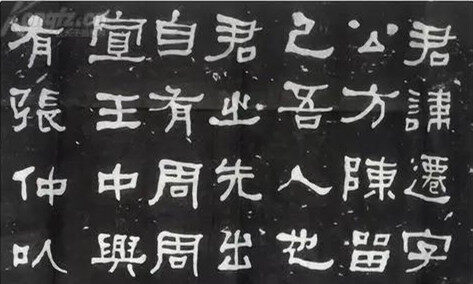 君諱遷字
公方陳留
己吾人也
君之先出
自有周周
宣王中興
有張仲以